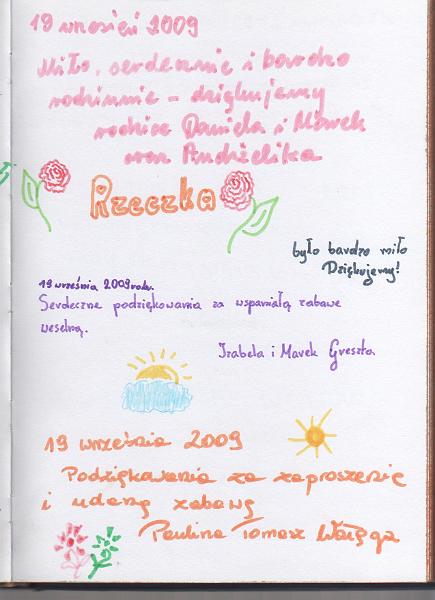 19 wrzesień 2009
Miło, serdecznie i bardzo
rodzinnie - dziękujemy
rodzice Daniela i Marek
oraz Andżelika
Rzeczka
było bardzo miło
Dziękujemy!
19 września 2009 roku.
Serdeczne podziękowania za wspaniałą zabawę
weselną.
Izabela i Marek Greszta
19 września 2009
Podziękowania za zaproszenie
i udaną zabawę
Paulina Tomasz